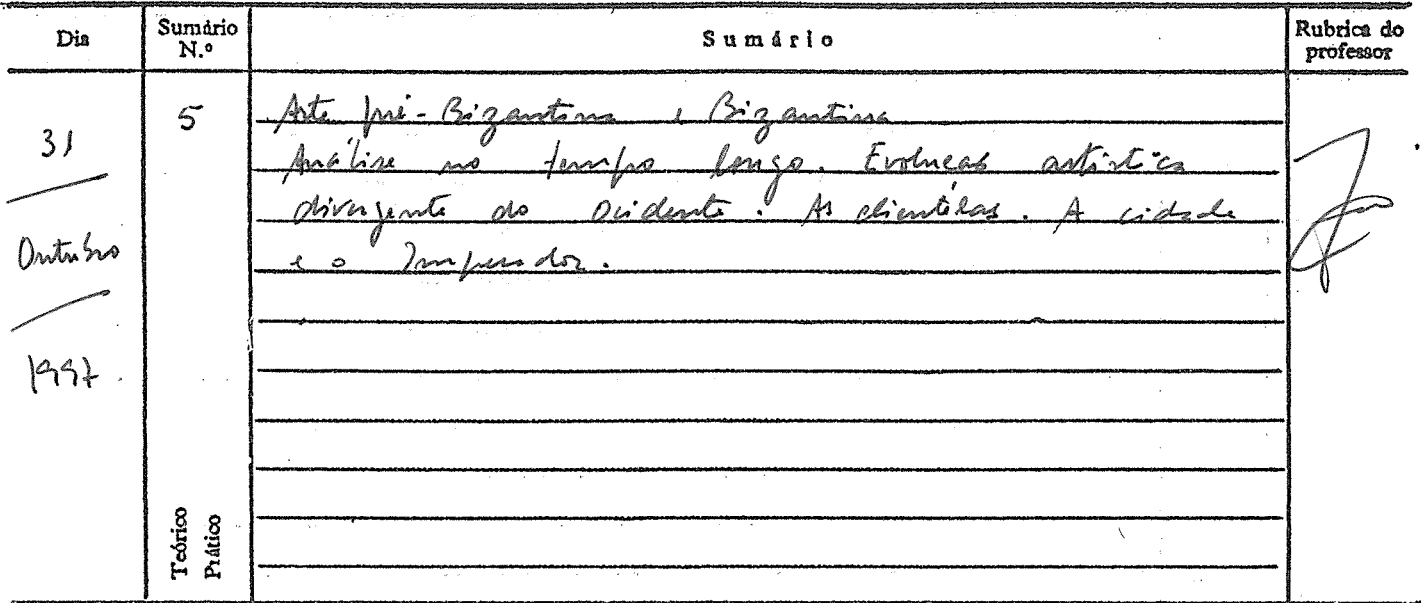 Dia
Sumário N.º
Sumário
Rubrica do professor
31
Outubro
1997.
5
Arte pré-Bizantina e Bizantina
Análise no tempo longo. Evolucao artística
divergente do Ocidente. As clientelas. A cidade
e o Imperador.
Teórico
Prático